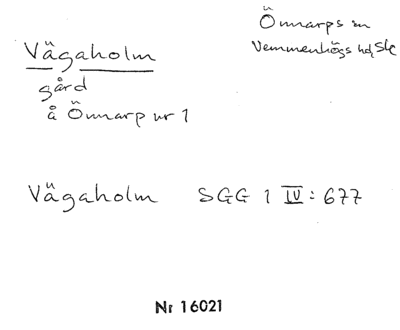 Önnarps sn
Vemmenhögs hd, Sk
Vägaholm
gård
å Önnarp nr 1
Vägaholm SGG 1 IV: 677
Nr 16021